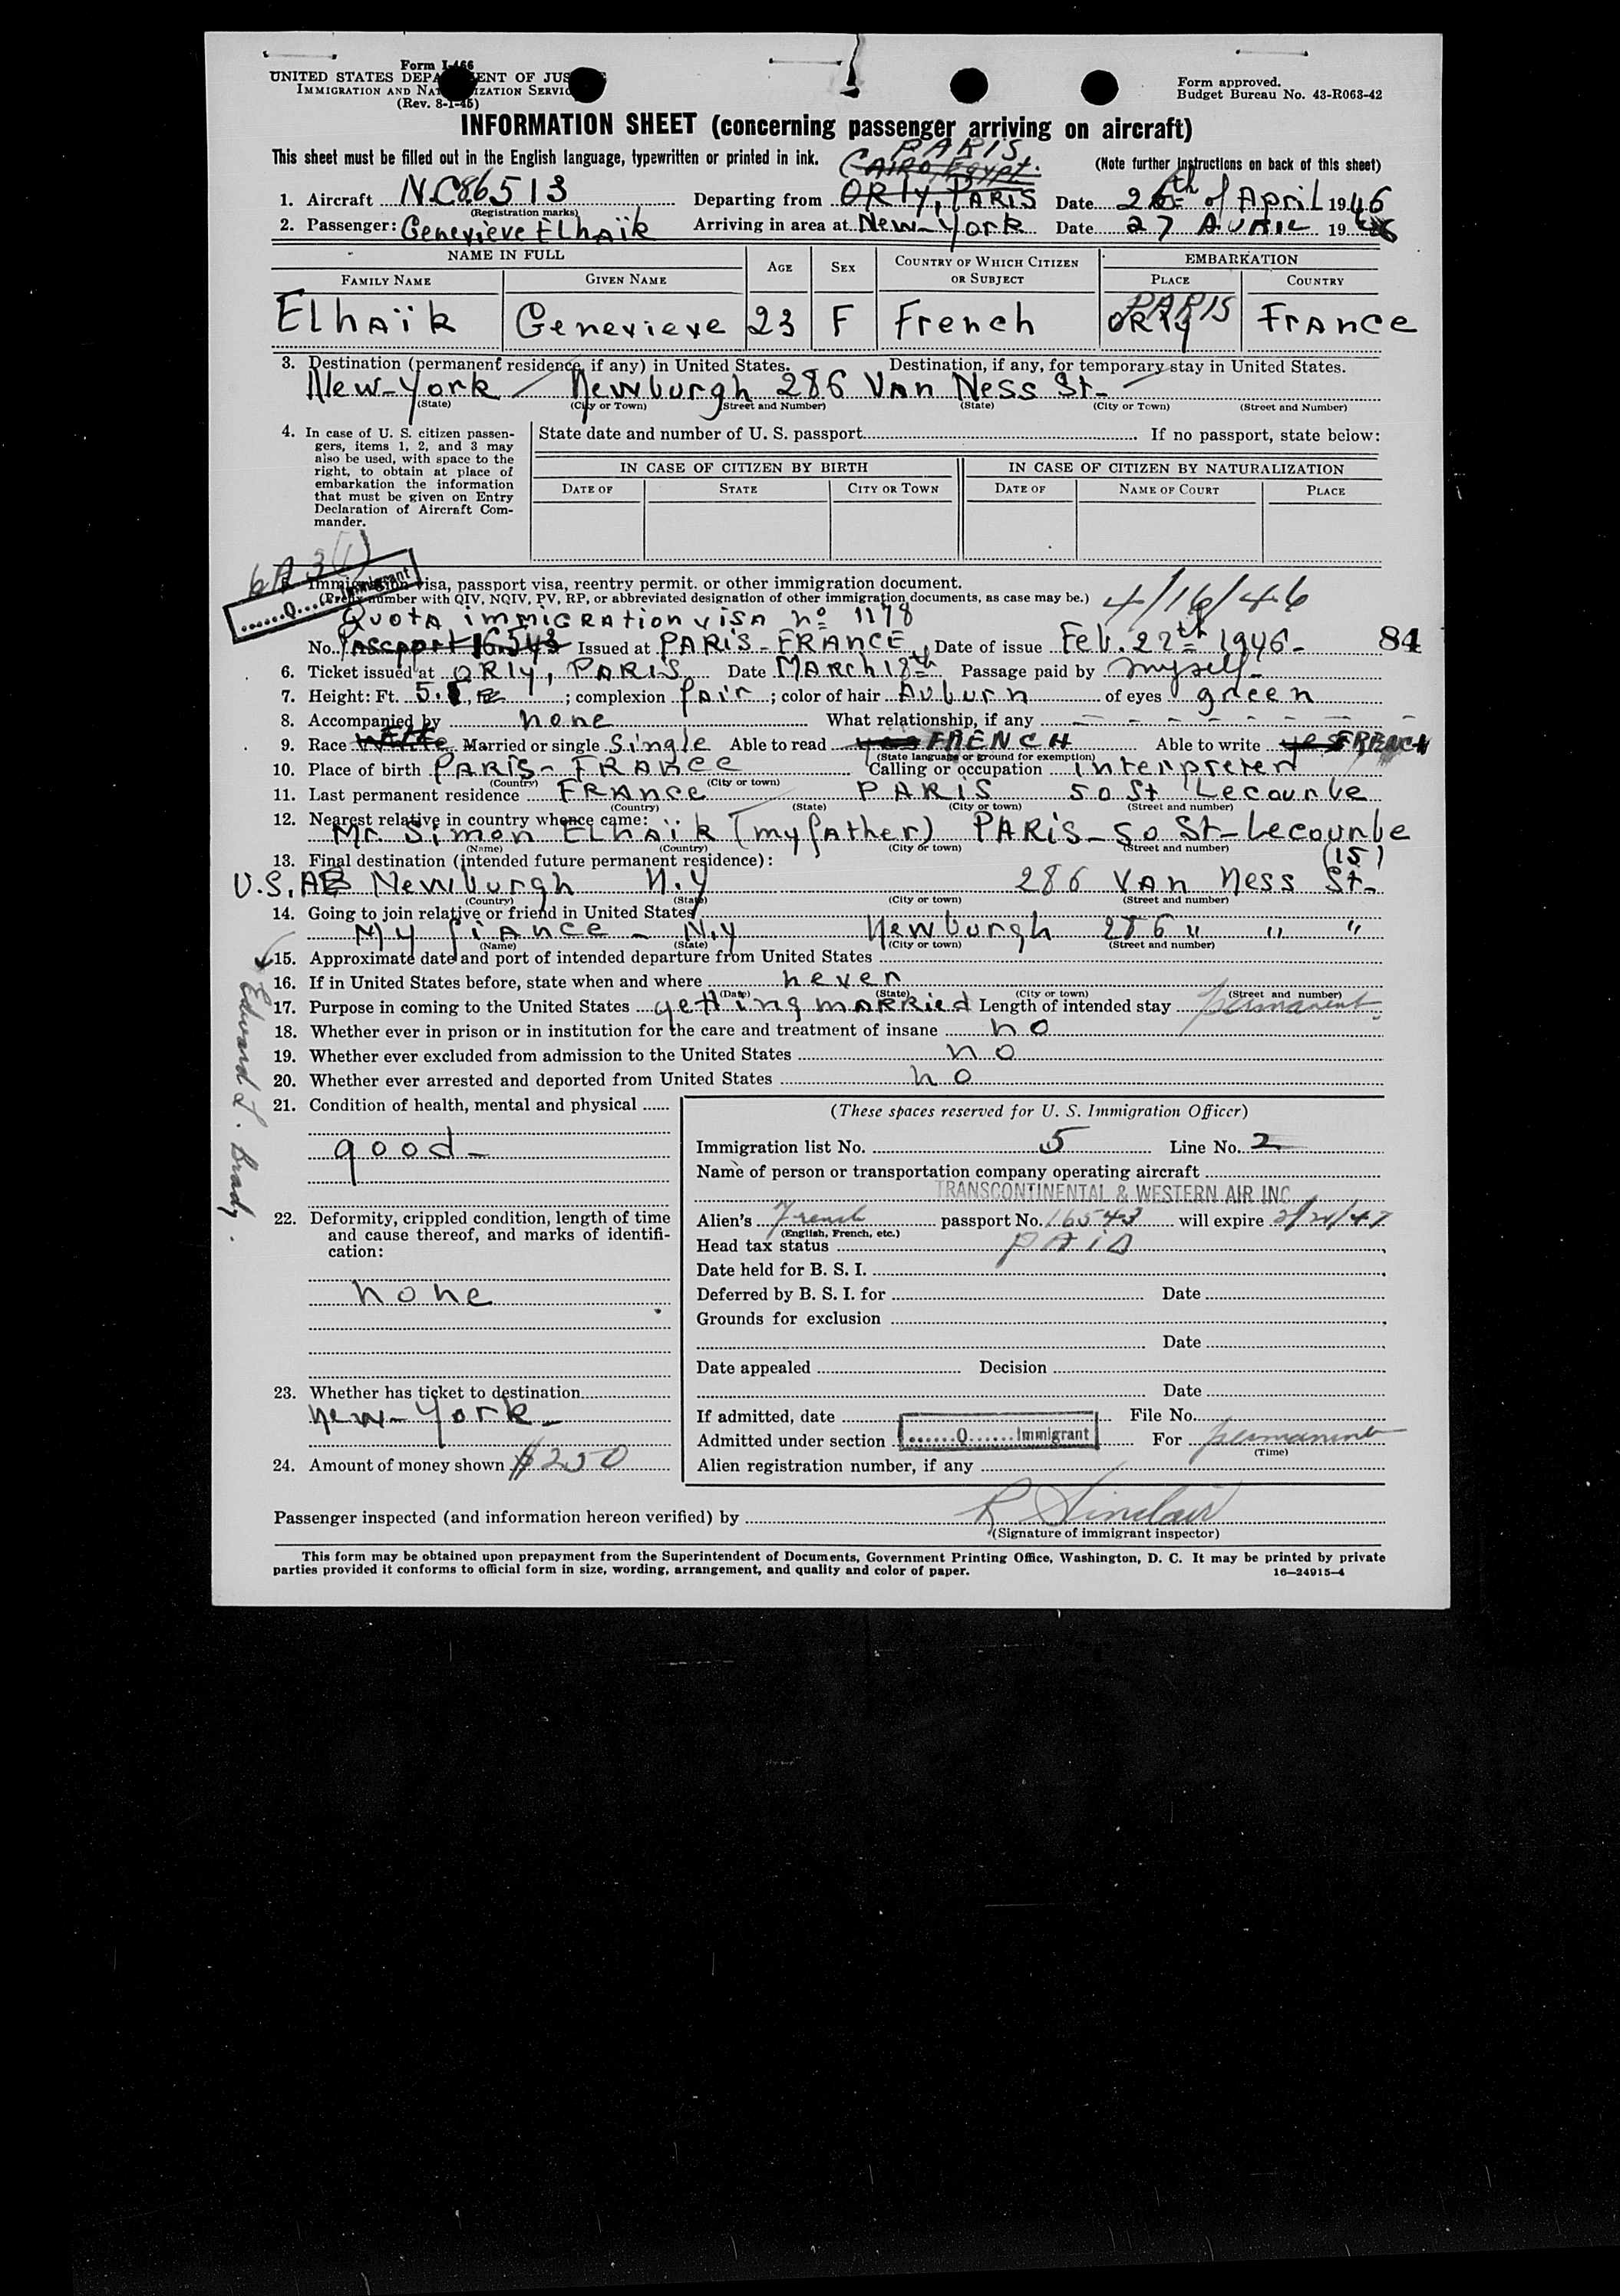 Form I-466
UNITED STATES DEPARTMENT OF JUSTICE
IMMIGRATION AND NATURALIZATION SERVICE
(Rev. 8-1-45)
Form approved.
Budget Bureau No. 43-R063-42
INFORMATION SHEET (concerning passenger arriving on aircraft)
This sheet must be filled out in the English language, typewritten or printed in ink.
(Note further instructions on back of this sheet)
PARIS
CAIRO, Egypt.
1. Aircraft NC86513 Departing from ORLY, PARIS Date 26th of April 1946
(Registration marks)
2. Passenger: Genevieve Elhaïk Arriving in area at New-York Date 27 AVRIL 1946
NAME IN FULL AGE SEX COUNTRY OF WHICH CITIZEN OR SUBJECT EMBARKATION
FAMILY NAME GIVEN NAME PLACE COUNTRY
PARIS
Elhaïk Genevieve 23 F French ORLY FRANCE
3. Destination (permanent residence, if any) in United States. Destination, if any, for temporary stay in United States.
New-York / Newburgh 286 Van Ness St-
(State) (City or Town) (Street and Number) (State) (City or Town) (Street and Number)
4. In case of U. S. citizen passengers, items 1, 2, and 3 may also be used, with space to the right, to obtain at place of embarkation the information that must be given on Entry Declaration of Aircraft Commander.
State date and number of U. S. passport If no passport, state below:
IN CASE OF CITIZEN BY BIRTH IN CASE OF CITIZEN BY NATURALIZATION
DATE OF STATE CITY OR TOWN DATE OF NAME OF COURT PLACE
6A3(1)
......Q......Immigrant
5. Immigration visa, passport visa, reentry permit, or other immigration document.
(Prefix number with QIV, NQIV, PV, RP, or abbreviated designation of other immigration documents, as case may be.)
4/16/46
Quota immigration visa nº 1178
No. Passport 16543 Issued at PARIS-FRANCE, Date of issue Feb. 22th 1946- 84
6. Ticket issued at ORLY, PARIS Date MARCH 18th Passage paid by myself-
7. Height: Ft. 5. ; complexion fair ; color of hair Auburn of eyes green
8. Accompanied by none What relationship, if any
9. Race White Married or single Single Able to read yes FRENCH Able to write yes FRENCH
(State language or ground for exemption)
10. Place of birth PARIS-FRANCE Calling or occupation interpreter
(Country) (City or town)
11. Last permanent residence FRANCE PARIS 50 St Lecourbe
(Country) (State) (City or town) (Street and number)
12. Nearest relative in country whence came:
Mr. Simon Elhaïk (my father) PARIS-50 St-Lecourbe
(Name) (Country) (City or town) (Street and number)
(15)
13. Final destination (intended future permanent residence):
U.S.A Newburgh N.Y 286 Van Ness St-
(Country) (State) (City or town) (Street and number)
14. Going to join relative or friend in United States
My fiance - N.Y Newburgh 286 " " "
(Name) (State) (City or town) (Street and number)
15. Approximate date and port of intended departure from United States
16. If in United States before, state when and where never
(Date) (State) (City or town) (Street and number)
17. Purpose in coming to the United States getting married Length of intended stay permanent
Edward J. Brady.
18. Whether ever in prison or in institution for the care and treatment of insane no
19. Whether ever excluded from admission to the United States no
20. Whether ever arrested and deported from United States no
21. Condition of health, mental and physical
good-
22. Deformity, crippled condition, length of time and cause thereof, and marks of identification:
none
23. Whether has ticket to destination
New-York-
24. Amount of money shown $250
(These spaces reserved for U. S. Immigration Officer)
Immigration list No. 5 Line No. 2
Name of person or transportation company operating aircraft
TRANSCONTINENTAL & WESTERN AIR INC
Alien's French passport No. 16543 will expire 2/21/47
(English, French, etc.)
Head tax status PAID
Date held for B. S. I.
Deferred by B. S. I. for Date
Grounds for exclusion
Date
Date appealed Decision
Date
If admitted, date File No.
Admitted under section ......Q......Immigrant For permanent
(Time)
Alien registration number, if any
Passenger inspected (and information hereon verified) by R Sinclair
(Signature of immigrant inspector)
This form may be obtained upon prepayment from the Superintendent of Documents, Government Printing Office, Washington, D. C. It may be printed by private
parties provided it conforms to official form in size, wording, arrangement, and quality and color of paper. 16—24915-4